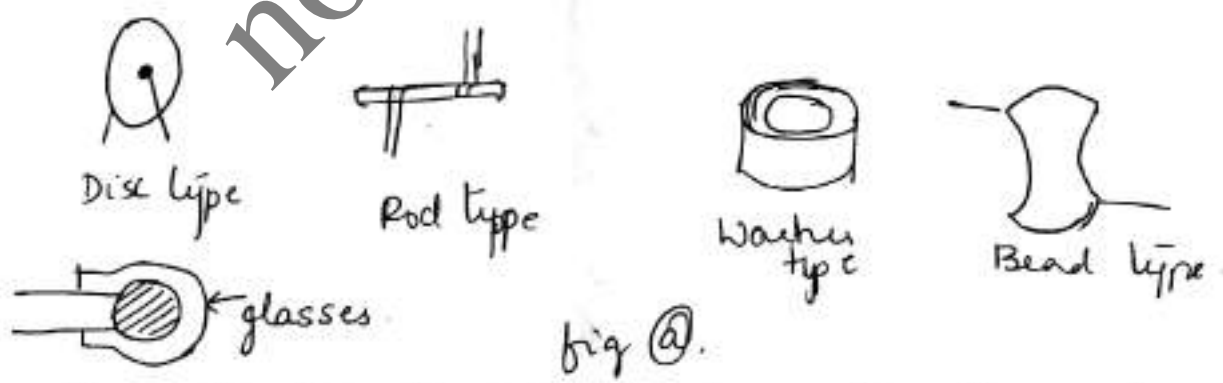 Disc type
Rod type
Washer
type
Bead type.
glasses.
fig (a).